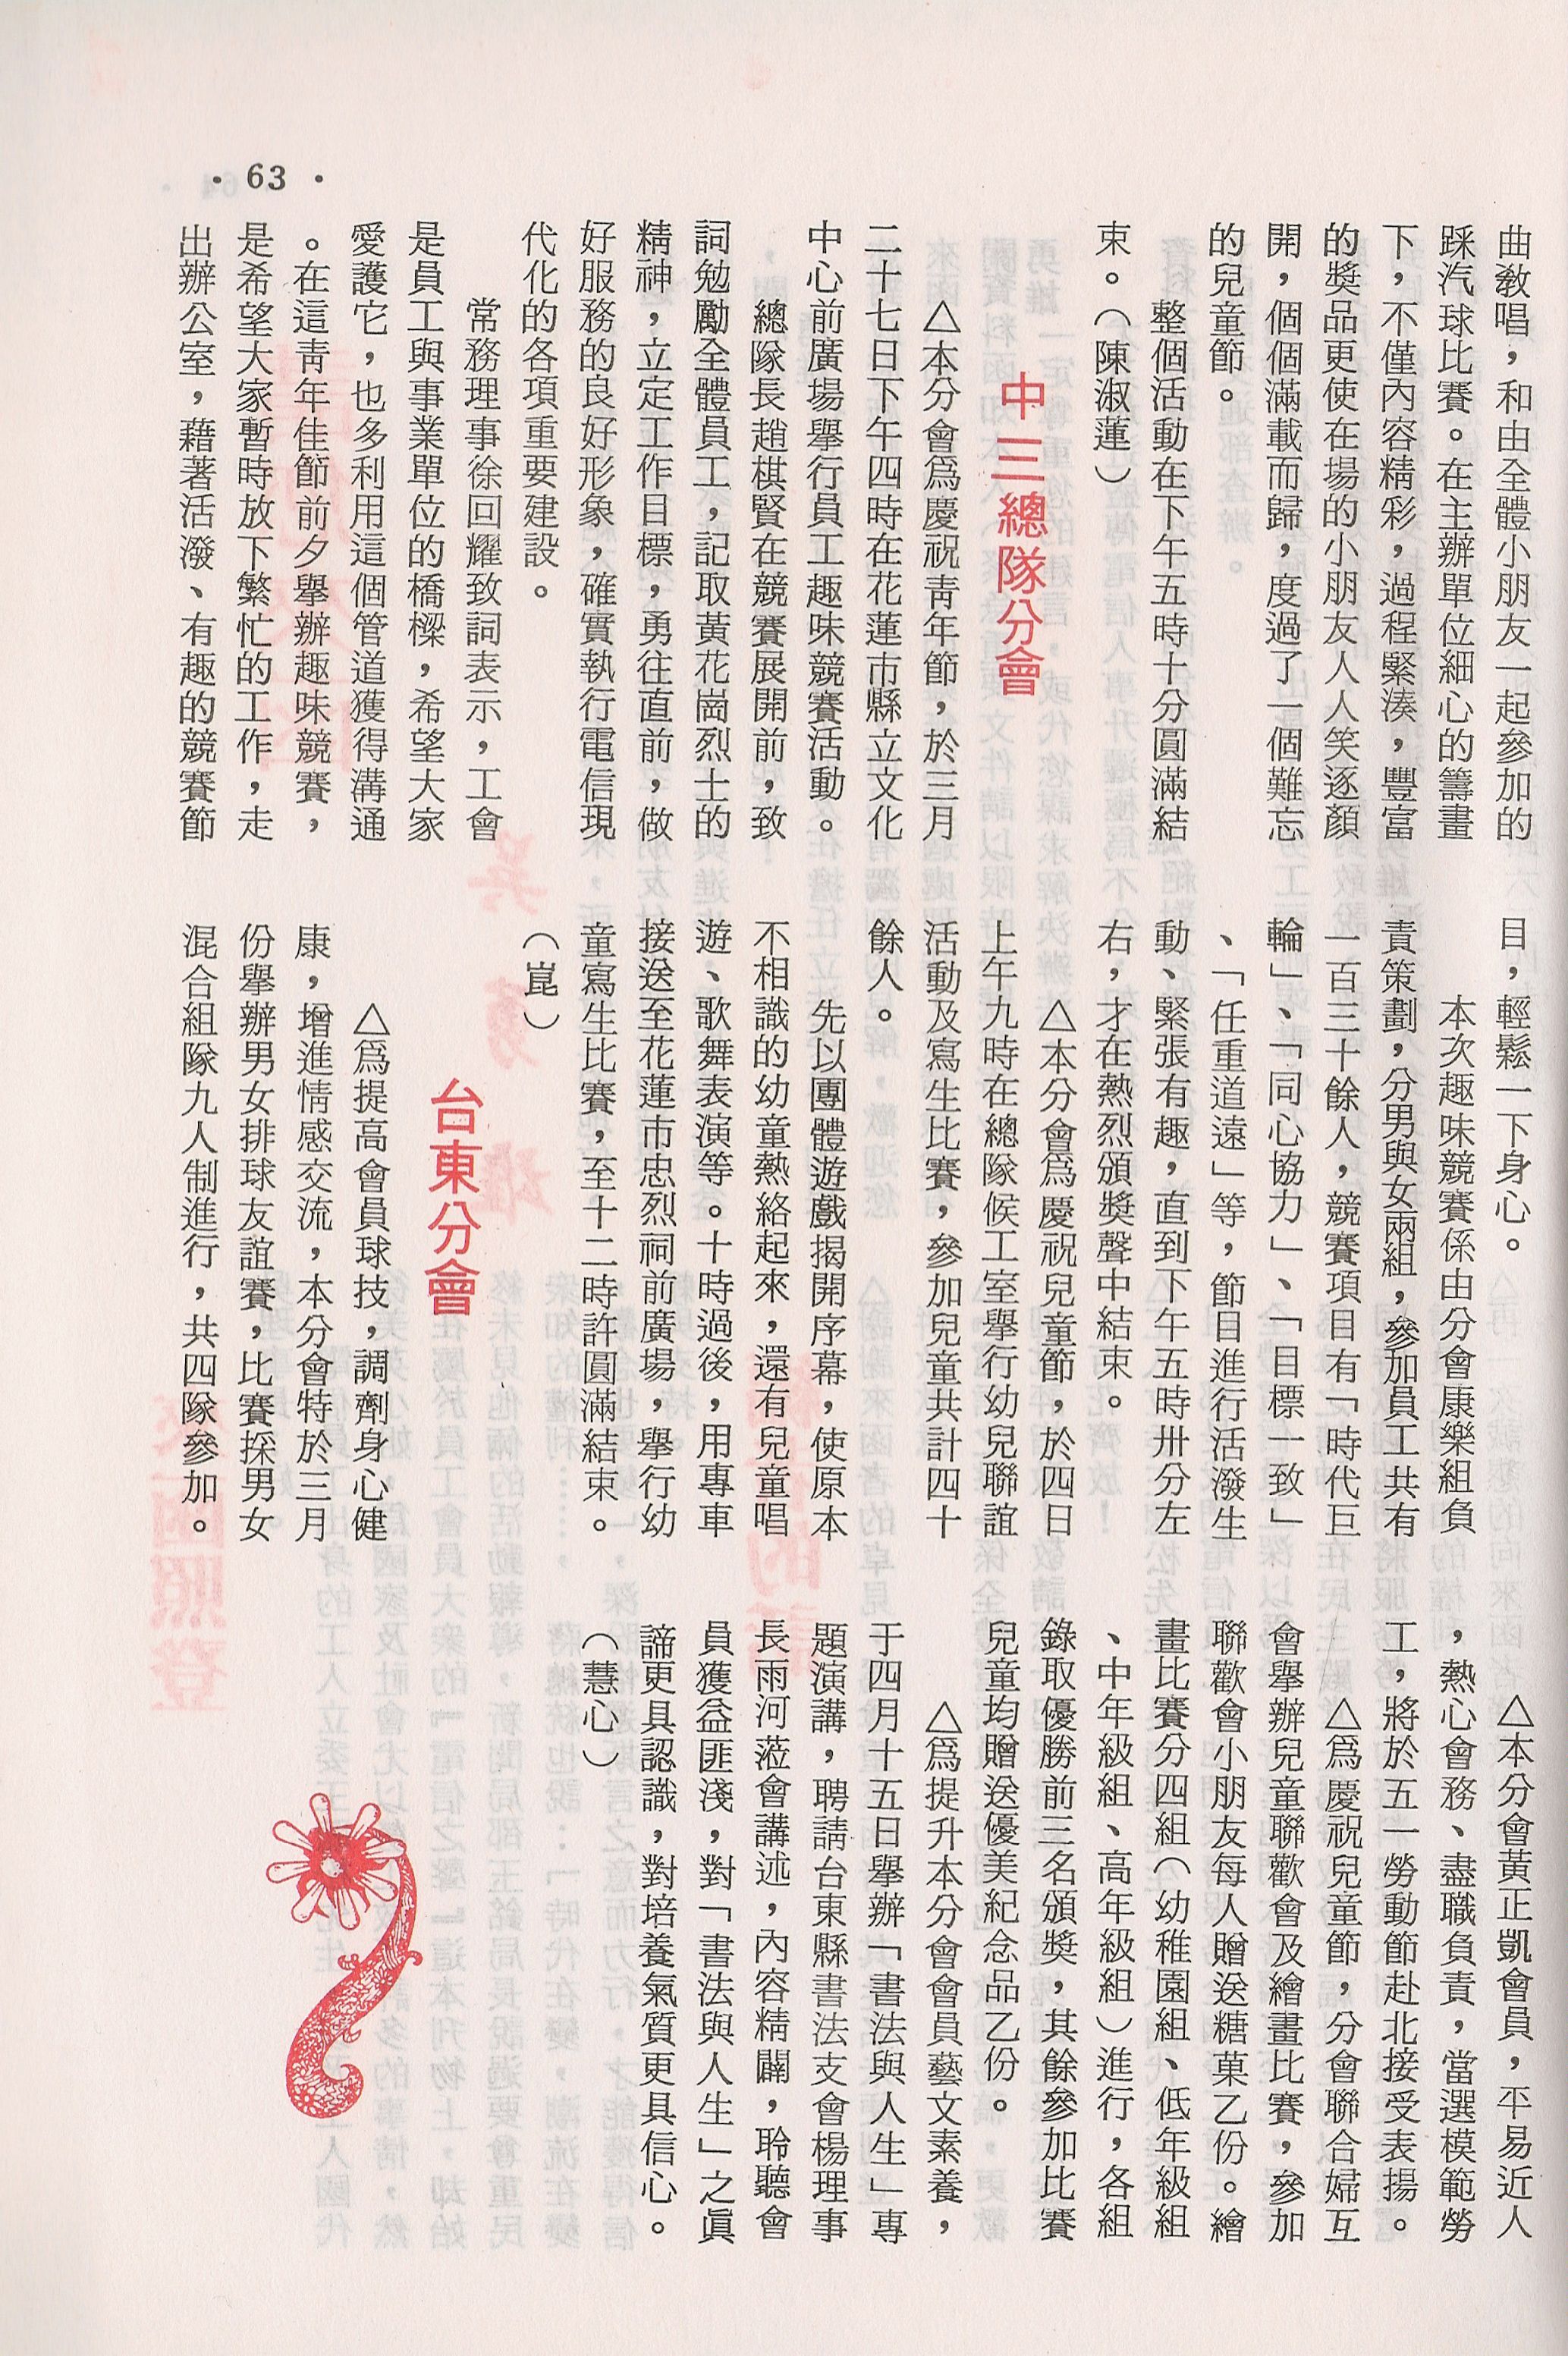 ·63·
曲教唱，和由全體小朋友一起參加的
踩汽球比賽。在主辦單位細心的籌畫
下，不僅內容精彩，過程緊湊，豐富
的獎品更使在場的小朋友人人笑逐顏
開，個個滿載而歸，度過了一個難忘
的兒童節。
整個活動在下午五時十分圓滿結
束。（陳淑蓮）
中三總隊分會
△本分會爲慶祝靑年節，於三月
二十七日下午四時在花蓮市縣立文化
中心前廣場舉行員工趣味競賽活動。
總隊長趙棋賢在競賽展開前，致
詞勉勵全體員工，記取黃花崗烈士的
精神，立定工作目標，勇往直前，做
好服務的良好形象，確實執行電信現
代化的各項重要建設。
常務理事徐回耀致詞表示，工會
是員工與事業單位的橋樑，希望大家
愛護它，也多利用這個管道獲得溝通
。在這靑年佳節前夕舉辦趣味競賽，
是希望大家暫時放下繁忙的工作，走
出辦公室，藉著活潑、有趣的競賽節
目，輕鬆一下身心。
本次趣味競賽係由分會康樂組負
責策劃，分男與女兩組，參加員工共有
一百三十餘人，競賽項目有「時代巨
輪」、「同心協力」、「目標一致」
、「任重道遠」等，節目進行活潑生
動、緊張有趣，直到下午五時卅分左
右，才在熱烈頒獎聲中結束。
△本分會爲慶祝兒童節，於四日
上午九時在總隊候工室舉行幼兒聯誼
活動及寫生比賽，參加兒童共計四十
餘人。
先以團體遊戲揭開序幕，使原本
不相識的幼童熱絡起來，還有兒童唱
遊、歌舞表演等。十時過後，用專車
接送至花蓮市忠烈祠前廣場，舉行幼
童寫生比賽，至十二時許圓滿結束。
（崑）
台東分會
△爲提高會員球技，調劑身心健
康，增進情感交流，本分會特於三月
份舉辦男女排球友誼賽，比賽採男女
混合組隊九人制進行，共四隊參加。
△本分會黃正凱會員，平易近人
，熱心會務、盡職負責，當選模範勞
工，將於五一勞動節赴北接受表揚。
△爲慶祝兒童節，分會聯合婦互
會舉辦兒童聯歡會及繪畫比賽，參加
聯歡會小朋友每人贈送糖菓乙份。繪
畫比賽分四組（幼稚園組、低年級組
、中年級組、高年級組）進行，各組
錄取優勝前三名頒獎，其餘參加比賽
兒童均贈送優美紀念品乙份。
△爲提升本分會會員藝文素養，
于四月十五日舉辦「書法與人生」專
題演講，聘請台東縣書法支會楊理事
長雨河蒞會講述，內容精闢，聆聽會
員獲益匪淺，對「書法與人生」之眞
諦更具認識，對培養氣質更具信心。
（慧心）